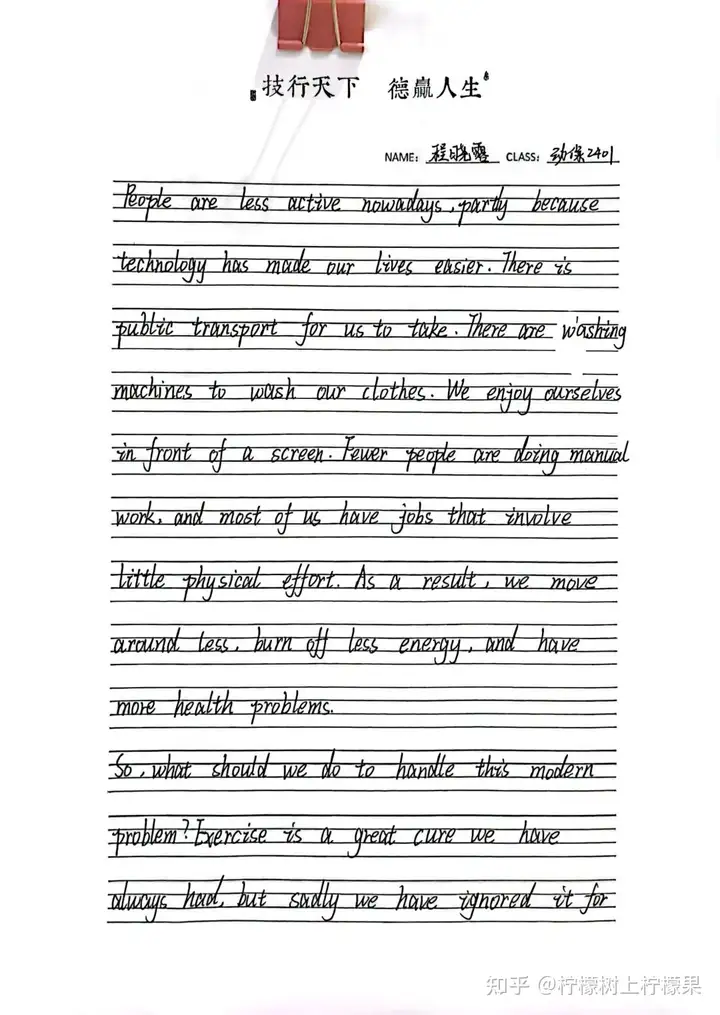 技行天下 德赢人生
NAME: 程晓露 CLASS: 动保2401
People are less active nowadays, partly because
technology has made our lives easier. There is
public transport for us to take. There are washing
machines to wash our clothes. We enjoy ourselves
in front of a screen. Fewer people are doing manual
work, and most of us have jobs that involve
little physical effort. As a result, we move
around less, burn off less energy, and have
more health problems.
So, what should we do to handle this modern
problem? Exercise is a great cure we have
always had, but sadly we have ignored it for
知乎 @柠檬树上柠檬果